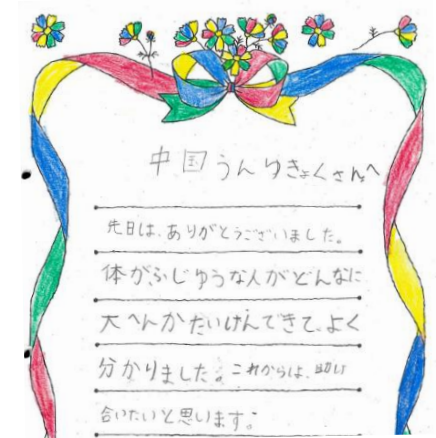 中国うんゆきょくさんへ
先日は、ありがとうございました。
体がふじゆうな人がどんなに
大へんかたいけんできて、よく
分かりました。これからは、助け
合いたいと思います。